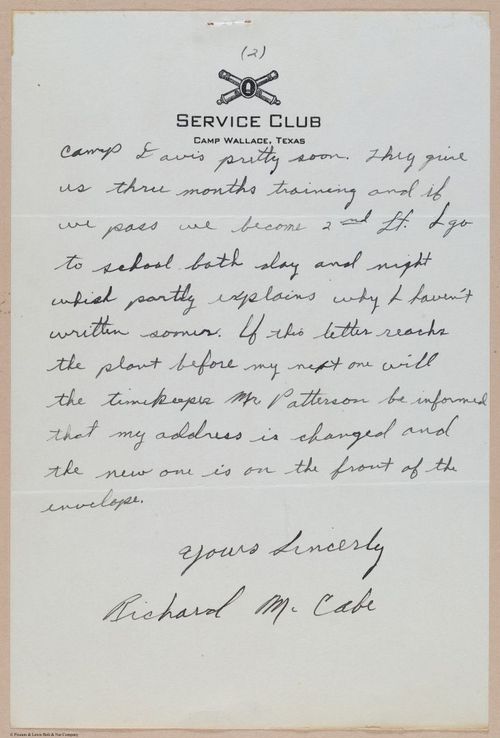 (2)
SERVICE CLUB
CAMP WALLACE, TEXAS
camp Davis pretty soon. They give
us three months training and if
we pass we become 2nd Lt. I go
to school both day and night
which partly explains why I haven't
written sooner. If this letter reachs
the plant before my next one will
the timekeeper Mr Patterson be informed
that my address is changed and
the new one is on the front of the
envelope.
Yours Sincerly
Richard McCabe
© Pioneers & Lewis Bolt & Nut Company